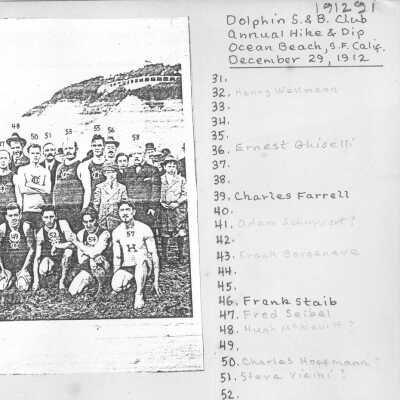 191291
Dolphin S. & B. Club
Annual Hike & Dip
Ocean Beach, S.F. Calif.
December 29, 1912
31.
32. Henry Wellmann
33.
34.
35.
36. Ernest Ghiselli
37.
38.
39. Charles Farrell
40.
41. Adam Schuppert?
42.
43. Frank Borgeneve
44.
45.
46. Frank Staib
47. Fred Seibel
48. Hugh ?
49.
50. Charles Hoffmann?
51. Steve Vicini?
52.
49
50
51
53
55
56
58
47
52
54
57
H